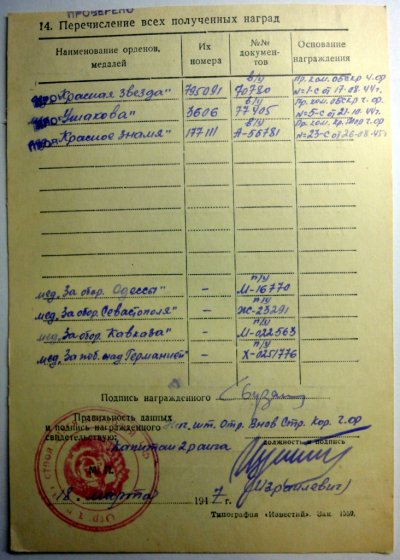 ПРОВЕРЕНО
14. Перечисление всех полученных наград
Наименование орденов, медалей
Их номера
№№ документов
Основание награждения
"Красная звезда" 795091 в/у 70780 Пр. ком. ОВСКР Ч.ор N=1-С от 17-08-44г.
"Ушакова" 3606 в/у 77405 N=5-С от 21-10-44г.
"Красное знамя" 177111 в/у А-55781 N=23-С от 26-08-45г
мед. "За обор. Одессы" – п/у М-16770
мед. "За обор. Севастополя" – п/у Ж-23291
мед. "За обор. Кавказа" – п/у М-022563
мед. "За поб. над Германией" – п/у Х-0251776
Подпись награжденного
Правильность данных
и подпись награжденного
свидетельствую:
Нач. шт. Отр. Внов Стр. Кор. Ч.ор
капитан 2 ранга
должность и подпись
(Израилевич)
18 марта 1947 г.
Типография «Известий». Зак. 1559.